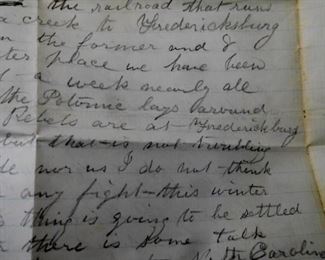 the railroad that runs
a creek to Fredericksburg
the former and I
place we have been
a week nearly all
the Potomic lays around
Rebels are at Fredericksburg
but that is not trubling
nor us I do not think
any fight this winter
thing is going to be settled
there is some talk
Carolin